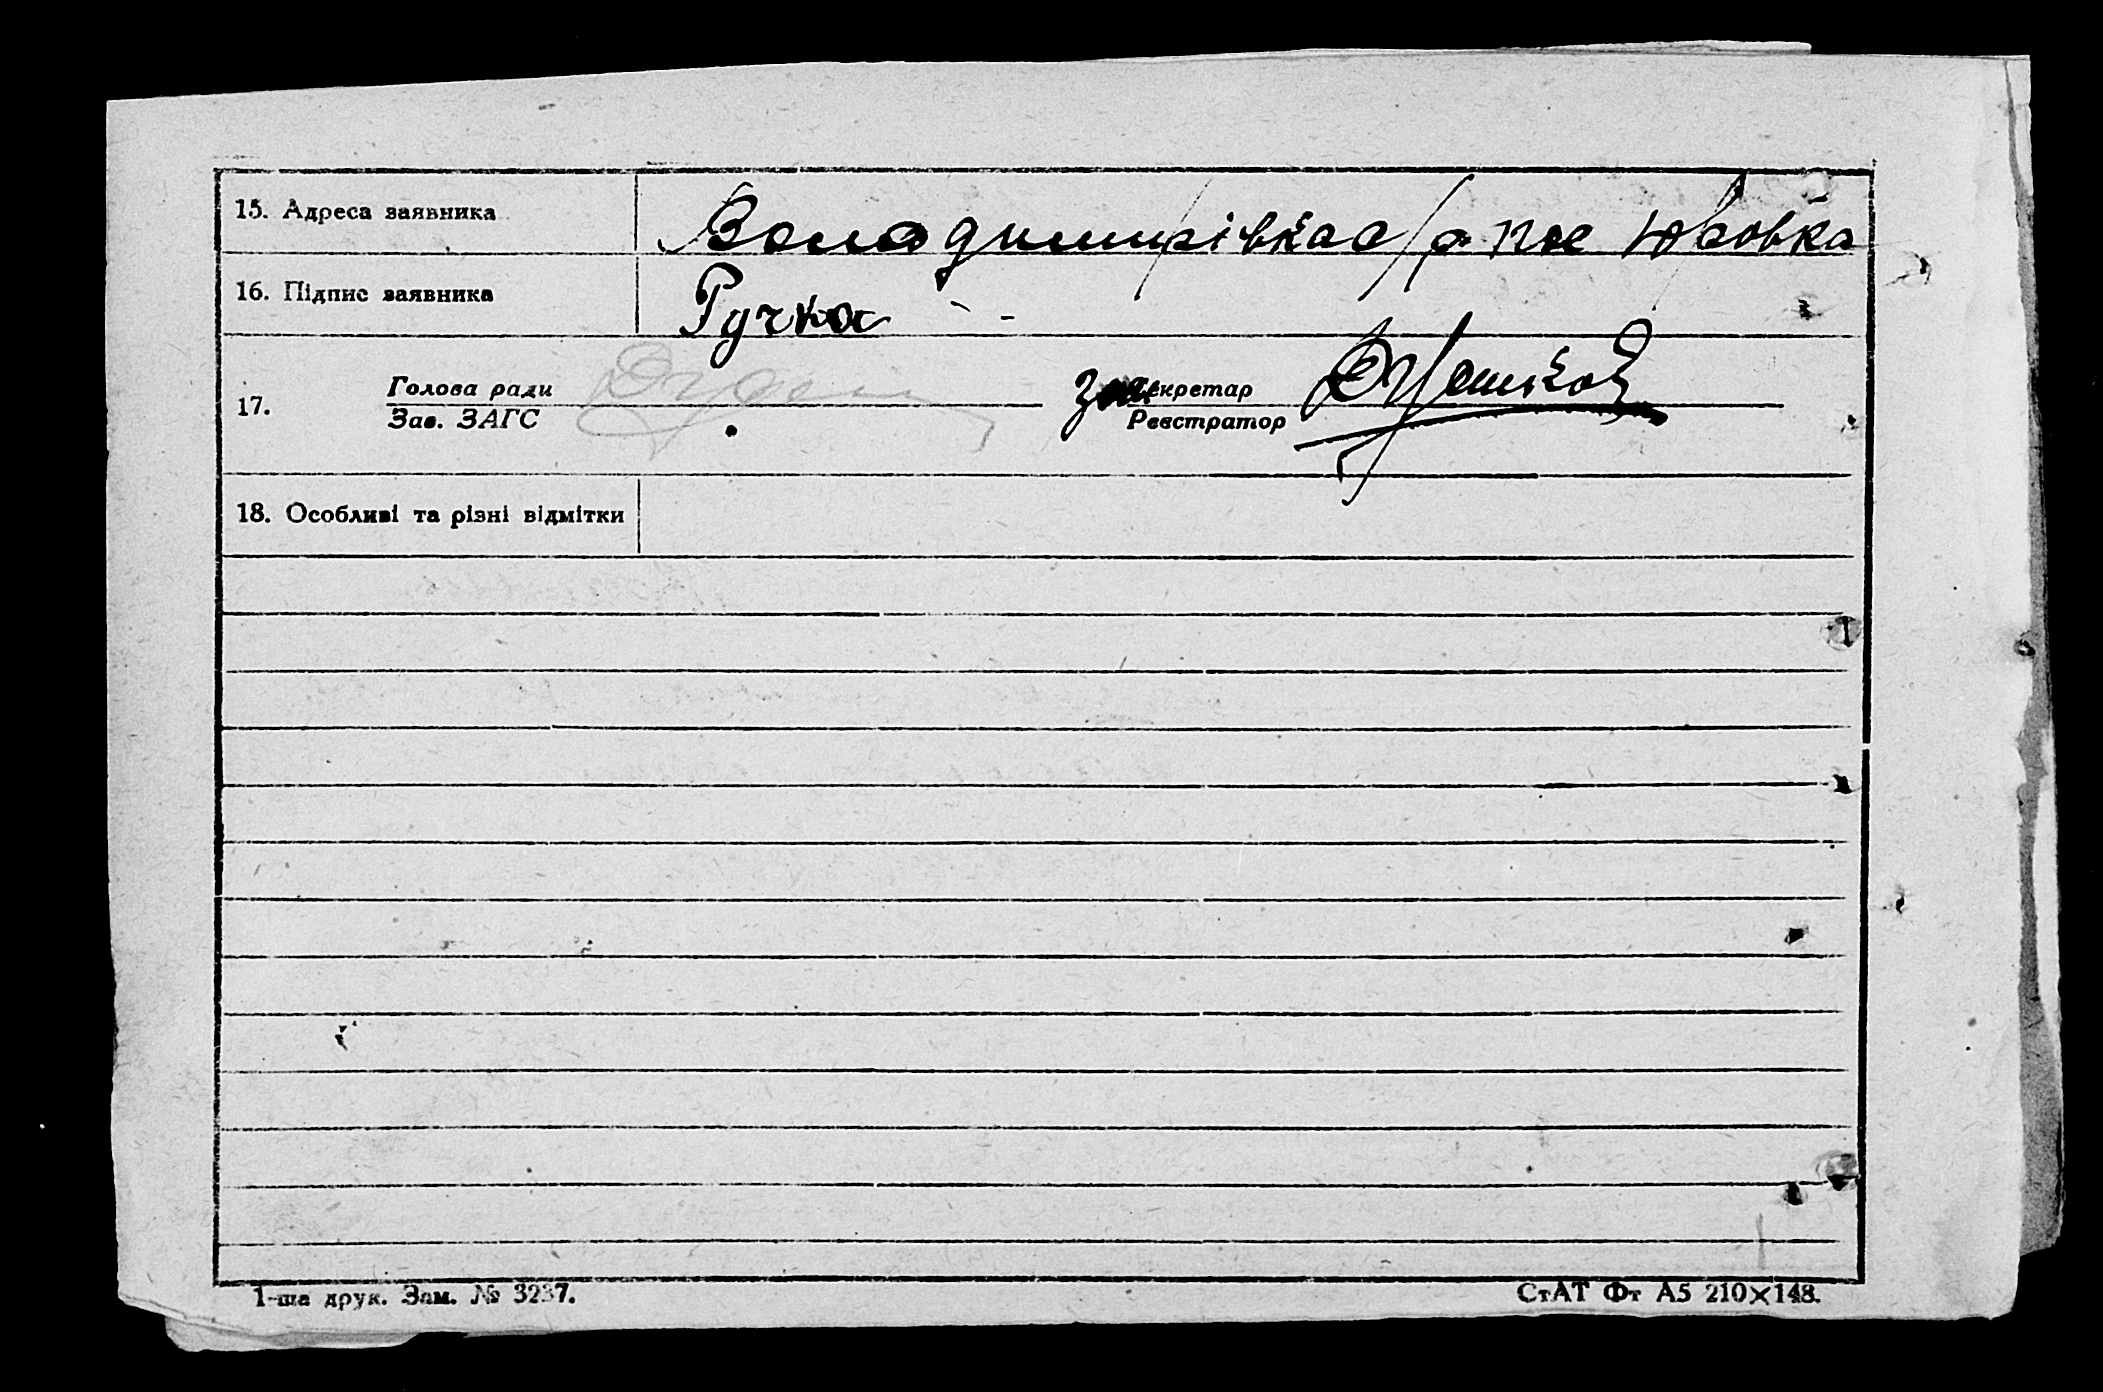 15. Адреса заявника Володимирівкас/р пос Юзовка
16. Підпис заявника Ручка
17. Голова ради за Секретар
Зав. ЗАГС Реєстратор
18. Особливі та різні відмітки
1-ша друк. Зам. № 3237. СтАТ Фт А5 210×148.